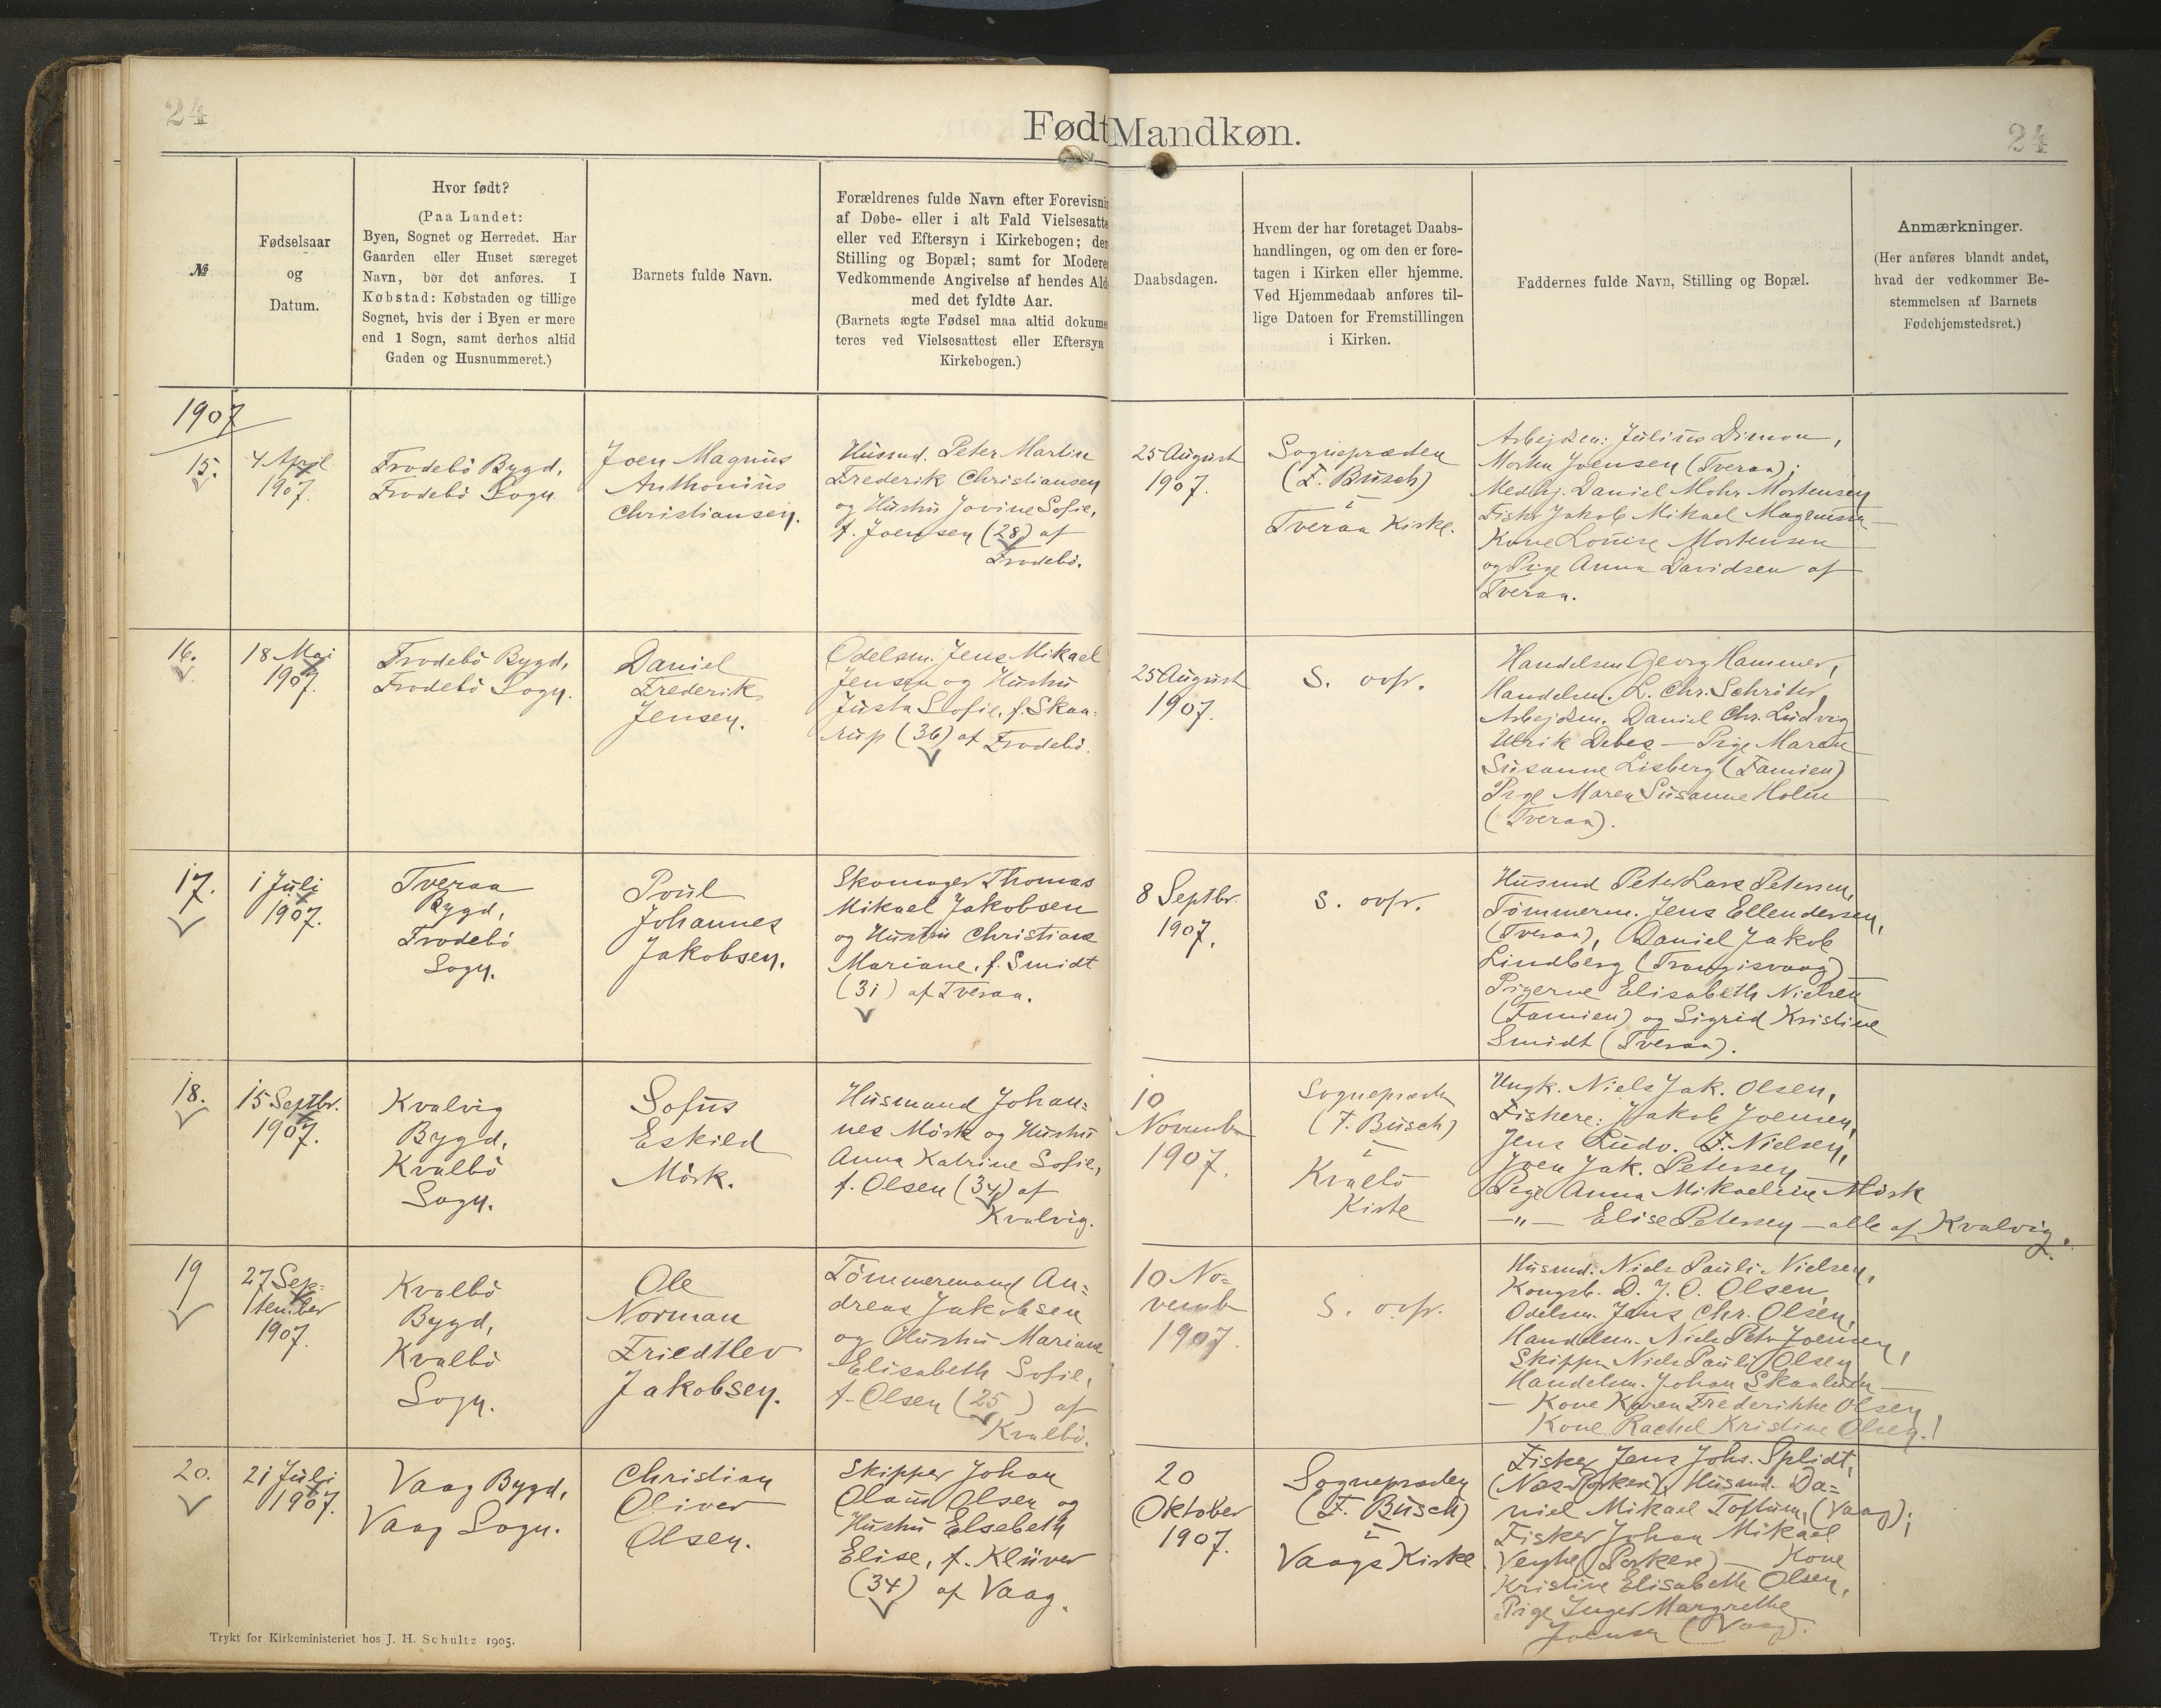 24
Født Mandkøn.
24
№
Fødselsaar
og
Datum.
Hvor født?
(Paa Landet:
Byen, Sognet og Herredet. Har
Gaarden eller Huset særeget
Navn, bør det anføres. I
Købstad: Købstaden og tillige
Sognet, hvis der i Byen er mere
end 1 Sogn, samt derhos altid
Gaden og Husnummeret.)
Barnets fulde Navn.
Forældrenes fulde Navn efter Forevisni
af Døbe- eller i alt Fald Vielsesatte
eller ved Eftersyn i Kirkebogen; de
Stilling og Bopæl; samt for Modere
Vedkommende Angivelse af hendes Ald
med det fyldte Aar.
(Barnets ægte Fødsel maa altid dokume
teres ved Vielsesattest eller Eftersyn
Kirkebogen.)
Daabsdagen.
Hvem der har foretaget Daabs-
handlingen, og om den er fore-
tagen i Kirken eller hjemme.
Ved Hjemmedaab anføres til-
lige Datoen for Fremstillingen
i Kirken.
Faddernes fulde Navn, Stilling og Bopæl.
Anmærkninger.
(Her anføres blandt andet,
hvad der vedkommer Be-
stemmelsen af Barnets
Fødehjemstedsret.)
1907
15.
4 April
1907.
Frodebö Bygd,
Frodebö Sogn.
Joen Magnus
Anthonius
Christiansen.
Husmd. Peter Martin
Frederik Christiansen
og Hustru Jovine Sofie,
f. Joensen (28) af
Frodebö.
25 August
1907.
Sognepræsten
(F. Busch)
i
Tveraa Kirke.
Arbejdsm: Julius Dimon,
Morten Joensen (Tveraa);
Medhj. Daniel Mohr Mortensen
Fisker Jakob Mikael Magnussen
Kone Louise Mortensen
og Pige Anna Davidsen af
Tveraa.
16.
18 Mai
1907.
Frodebö Bygd,
Frodebö Sogn.
Daniel
Frederik
Jensen.
Odelsm. Jens Mikael
Jensen og Hustru
Justa Sofie, f. Skaa=
rup (36) af Frodebö.
25 August
1907.
S. ovfr.
Handelsm Georg Hammer,
Handelsm. L. Chr. Schröter,
Arbejdsm. Daniel Chr. Ludvig
Ulrik Debes — Pige Maren
Susanne Lisberg (Famien)
Pige Maren Susanne Holm
(Tveraa).
17.
1 Juli
1907.
Tveraa
Bygd,
Frodebö
Sogn.
Poul
Johannes
Jakobsen.
Skomager Thomas
Mikael Jakobsen
og Hustru Christiane
Mariane, f. Smidt
(31) af Tveraa.
8 Septbr.
1907.
S. ovfr.
Husmd Peter Lars Petersen,
Tömmerm. Jens Ellendersen,
(Tveraa), Daniel Jakob
Lindberg (Trangisvaag)
Pigerne Elisabeth Nielsen
(Famien) og Sigrid Kristine
Smidt (Tveraa).
18.
15 Septbr.
1907.
Kvalvig
Bygd,
Kvalbö
Sogn.
Sofus
Eskild
Mörk.
Husmand Johan=
nes Mörk og Hustru
Anna Katrine Sofie,
f. Olsen (34) af
Kvalvig.
10
Novemb
1907.
Sognepræsten
(F. Busch)
i
Kvalbö
Kirke
Ungk. Niels Jak. Olsen,
Fiskere: Jakob Joensen,
Jens Ludv. F. Nielsen,
Joen Jak. Petersen
Pige Anna Mikaeline Mörk
—„— Elise Petersen — alle af Kvalvig.
19
27 Sep=
tember
1907.
Kvalbö
Bygd,
Kvalbö
Sogn.
Ole
Norman
Friedtlev
Jakobsen.
Tömmermand An=
dreas Jakobsen
og Hustru Mariane
Elisabeth Sofie,
f. Olsen (25) af
Kvalbö.
10 No=
vemb
1907.
S. ovfr.
Husmd. Niels Pauli Nielsen,
Kongsb. D. J. O. Olsen,
Odelsm. Jens Chr. Olsen,
Handelsm. Niels Petr Joensen,
Skipper Niels Pauli Olsen
Handelsm. Johan Skaalum
— Kone Karen Frederikke Olsen
Kone Rachel Kristine Olsen.
20.
21 Juli
1907.
Vaag Bygd,
Vaag Sogn.
Christian
Oliver
Olsen.
Skipper Johan
Olaus Olsen og
Hustru Elsebeth
Elise, f. Klüver
(34) af Vaag.
20
Oktober
1907.
Sognepræsten
(F. Busch)
i
Vaags Kirke
Fisker Jens Johs. Splidt,
(Næs-Porkere), Husmd. Da=
niel Mikael Toftum, (Vaag);
Fisker Johan Mikael
Veyhe (Porkere) — Kone
Kristine Elisabeth Olsen,
Pige Inger Margrethe
Joensen (Vaag).
Trykt for Kirkeministeriet hos J. H. Schultz 1905.